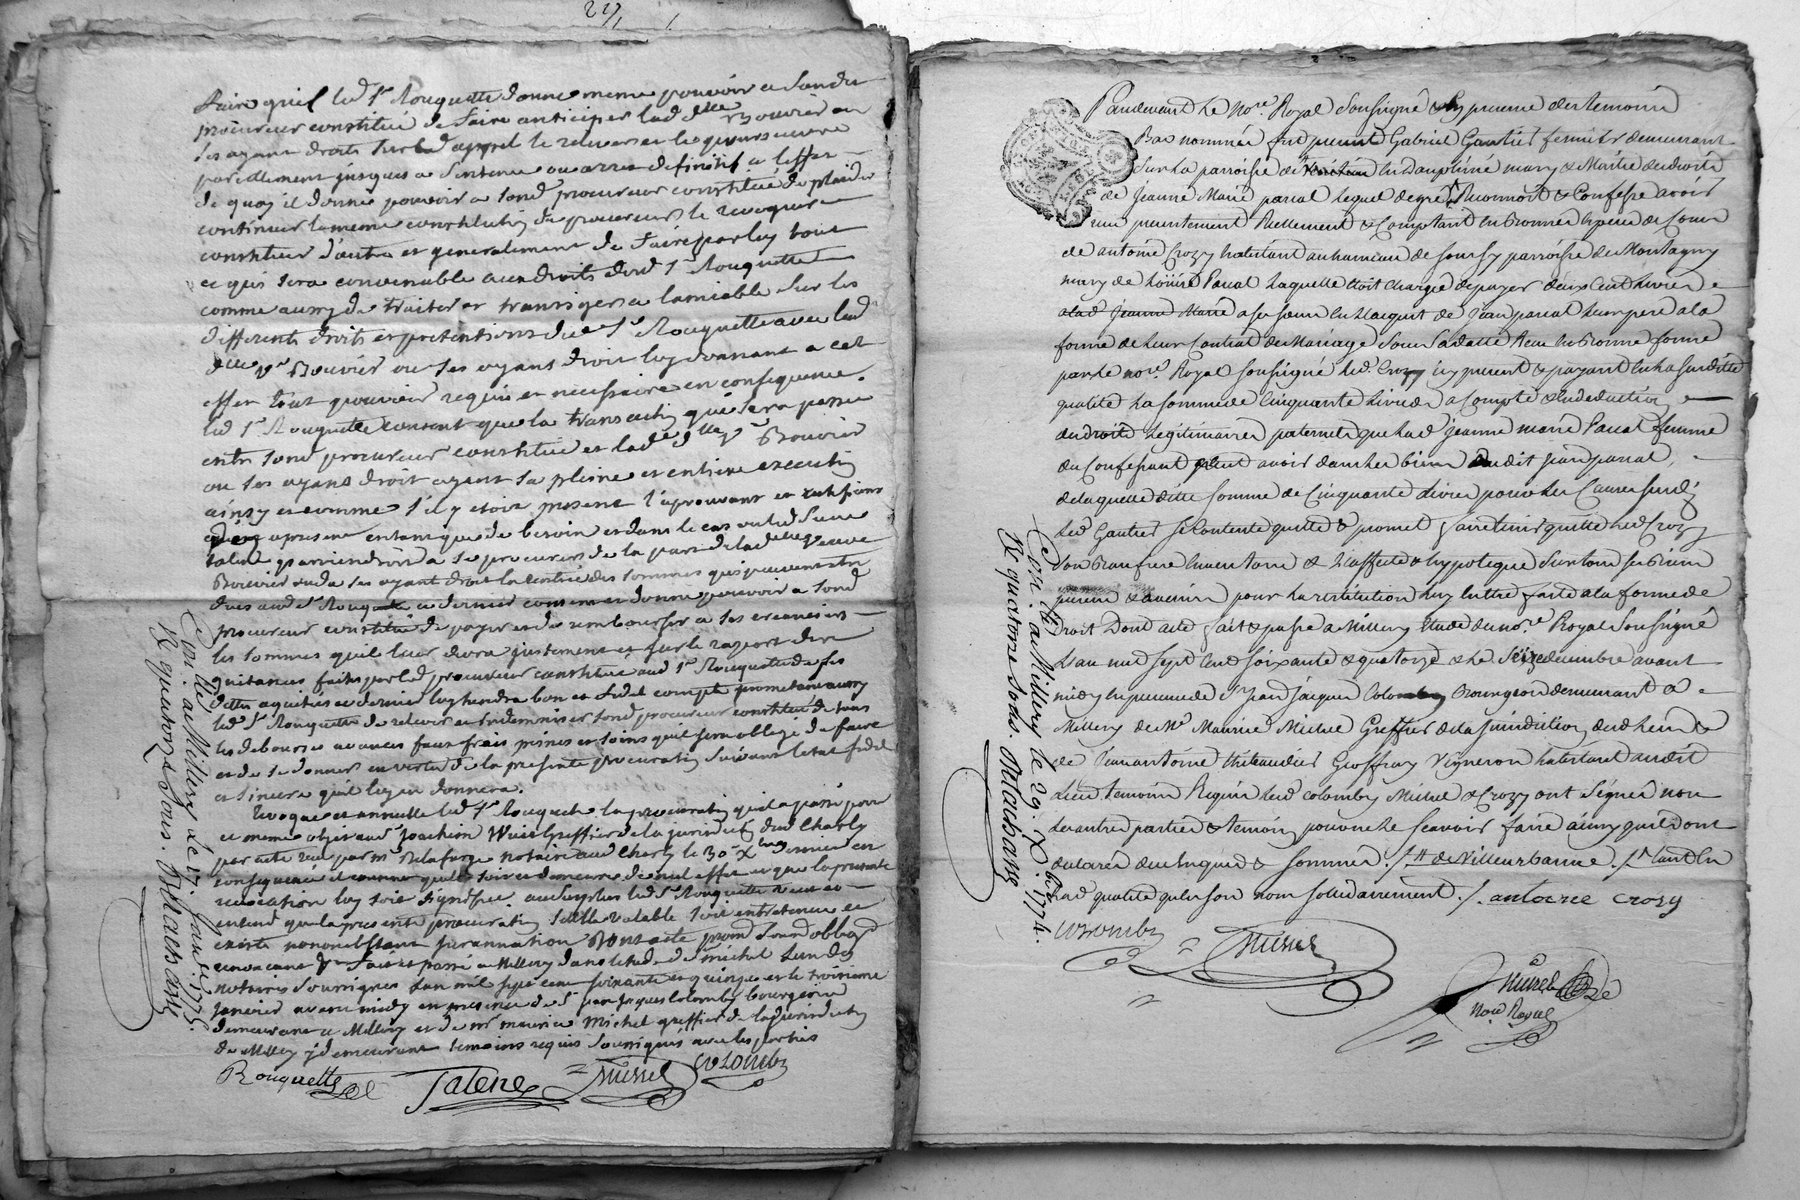 faire quoi led Sr Rouquette donne meme pouvoir a sondit
procureur constitué de faire anticiper lad dlle Bouvier ou
ses ayant droits sur led appel le relever et le poursuivre
pareillement jusques a sentence ou arret definitif a leffet
de quoy il donne pouvoir a sond procureur constitué de plaider
continuer la meme constitution du procureur le revoquer
constituer d'autres et generalement de faire par luy tout
ce qui sera convenable aux droits dud Sr Rouquette
comme aussy de traiter et transiger a lamiable sur les
differents droits et pretentions dud Sr Rouquette avec lad
dlle ve Bouvier ou ses ayans droit luy donnant a cet
effet tout pouvoir requis et necessaire en consequence
led Sr Rouquette consent que la transaction qui sera passée
entre sond procureur constitué et lad dlle ve Bouvier
ou ses ayans droit ayent sa pleine et entiere execution
ainsy et comme s'il y etoit present l'aprouvant et ratifiant
apresent en tant que de besoin et dans le cas ou led Sieur
parviendroit a se procurer de la part de lad dlle veuve
Bouvier ou de ses ayant droit la rentrée des sommes qui peuvent etre
dues aud Sr Rouquette ce dernier consent et donne pouvoir a sond
procureur constitué de payer et de rembourser a ses creanciers
les sommes quil leur devra justement et sur le raport des
quitances faites par led procureur constitué aud Sr Rouquette de ses
dettes aquitées ce dernier luy tiendra bon et fidel compte promettant aussy
led Sr Rouquette de relever et indemniser sond procureur constitué de tous
les debourses avances faux frais peines et soins quil sera obligé de faire
et de se donner en vertu de la presente procuration suivant letat fidel
et sincere quil luy en donnera.
Revoque et annulle led Sr Rouquette la procuration qu'il a passé pour
le meme objet aud Sr Joachim greffier de la jurisdiction dud Charly
par acte reçu par me Delaforge notaire aud Charly le 30 Xbre dernier en
consequence il quelle soit et demeure de nul effet et que la presente
revocation luy soit signifiée au surplus led Sr Rouquette veut et
entend que la presente procuration soit valable soit entretenue et
executée nonobstant surannation Dont acte promet sound obligé
renoncant &c fait et passé a Millery dans letude de michel lun des
notaires soussignés Lan mil sept cent soixante et quinze et le troisieme
Janvier avant midy en presence de Sr jean Jacques Colomby bourgeois
demeurant a Millery et de mr maurice Michel greffier de la jurisdiction
de Millery y demeurant temoins requis soussignés avec les parties
Rouquette Galene Michel Colomby
Con. lle a Millery le 17. Janer. 1775.
R. quatorze sous. Delachassee
Pardevant le Nore Royal soussigné & en presence des temoins
Bas nommés fut present Gabriel Gautier fermier demeurant
sur la parroisse de en Dauphiné mary & Maitre des droits
de Jeanne Marie pascal lequel de gré Reconnoit & Confesse avoir
reçu presentement Reellement & Comptant en bonnes especes de Cours
de antoine Crozy habitant au hameau de sourzy parroisse de Montagny
mary de Loüise Pascal Laquelle etoit chargée de payer deux cent livres
a lad Jeanne Marie a sa soeur en Lacquit de Jean pascal leur pere a la
forme de leur Contrat de Mariage sous sa datte Reçu en bonne forme
par le nore. Royal soussigné led. Crozy icy present & payant en la susditte
qualité La somme de cinquante livres a Compte & en deduction
des droits legitimaires paternels que lad jeanne marie Pascal femme
du Confessant peut avoir dans les biens dudit jean pascal
de laquelle ditte somme de Cinquante livres pour les causes susd.
led Gautier se Contente quitte & promet faire tenir quitte led Crozy
son Beaufrere envers tous & il affecte & hypoteque sur tous ses biens
presens & avenir pour la restitution si elle faite a la forme de
Droit Dont acte fait & passé a Millery etude du nore. Royal soussigné
L'an mil sept cent soixante & quatorze & le seize decembre avant
midy en presence de Sr jean jacques Colomby Bourgeois demeurant a
Millery de Me Maurice Michel Greffier de la jurisdiction dud lieu &
de Jean antoine thibaudier Geoffray Vigneron habitant audit
Lieu temoins Requis led colomby Michel & Crozy ont signés non
les autres parties & temoins pour ne le scavoir faire ainsy quils ont
declarés de ce enquis & sommés. /. de Villeurbanne. /. tant en
lad qualité qu'en son nom solidairement. /. antoine crozy
Colomby Michel
Michel
Nore Royal
Con. lle a Millery le 29. Xbre. 1774.
R. quatorze sous. Delachassee